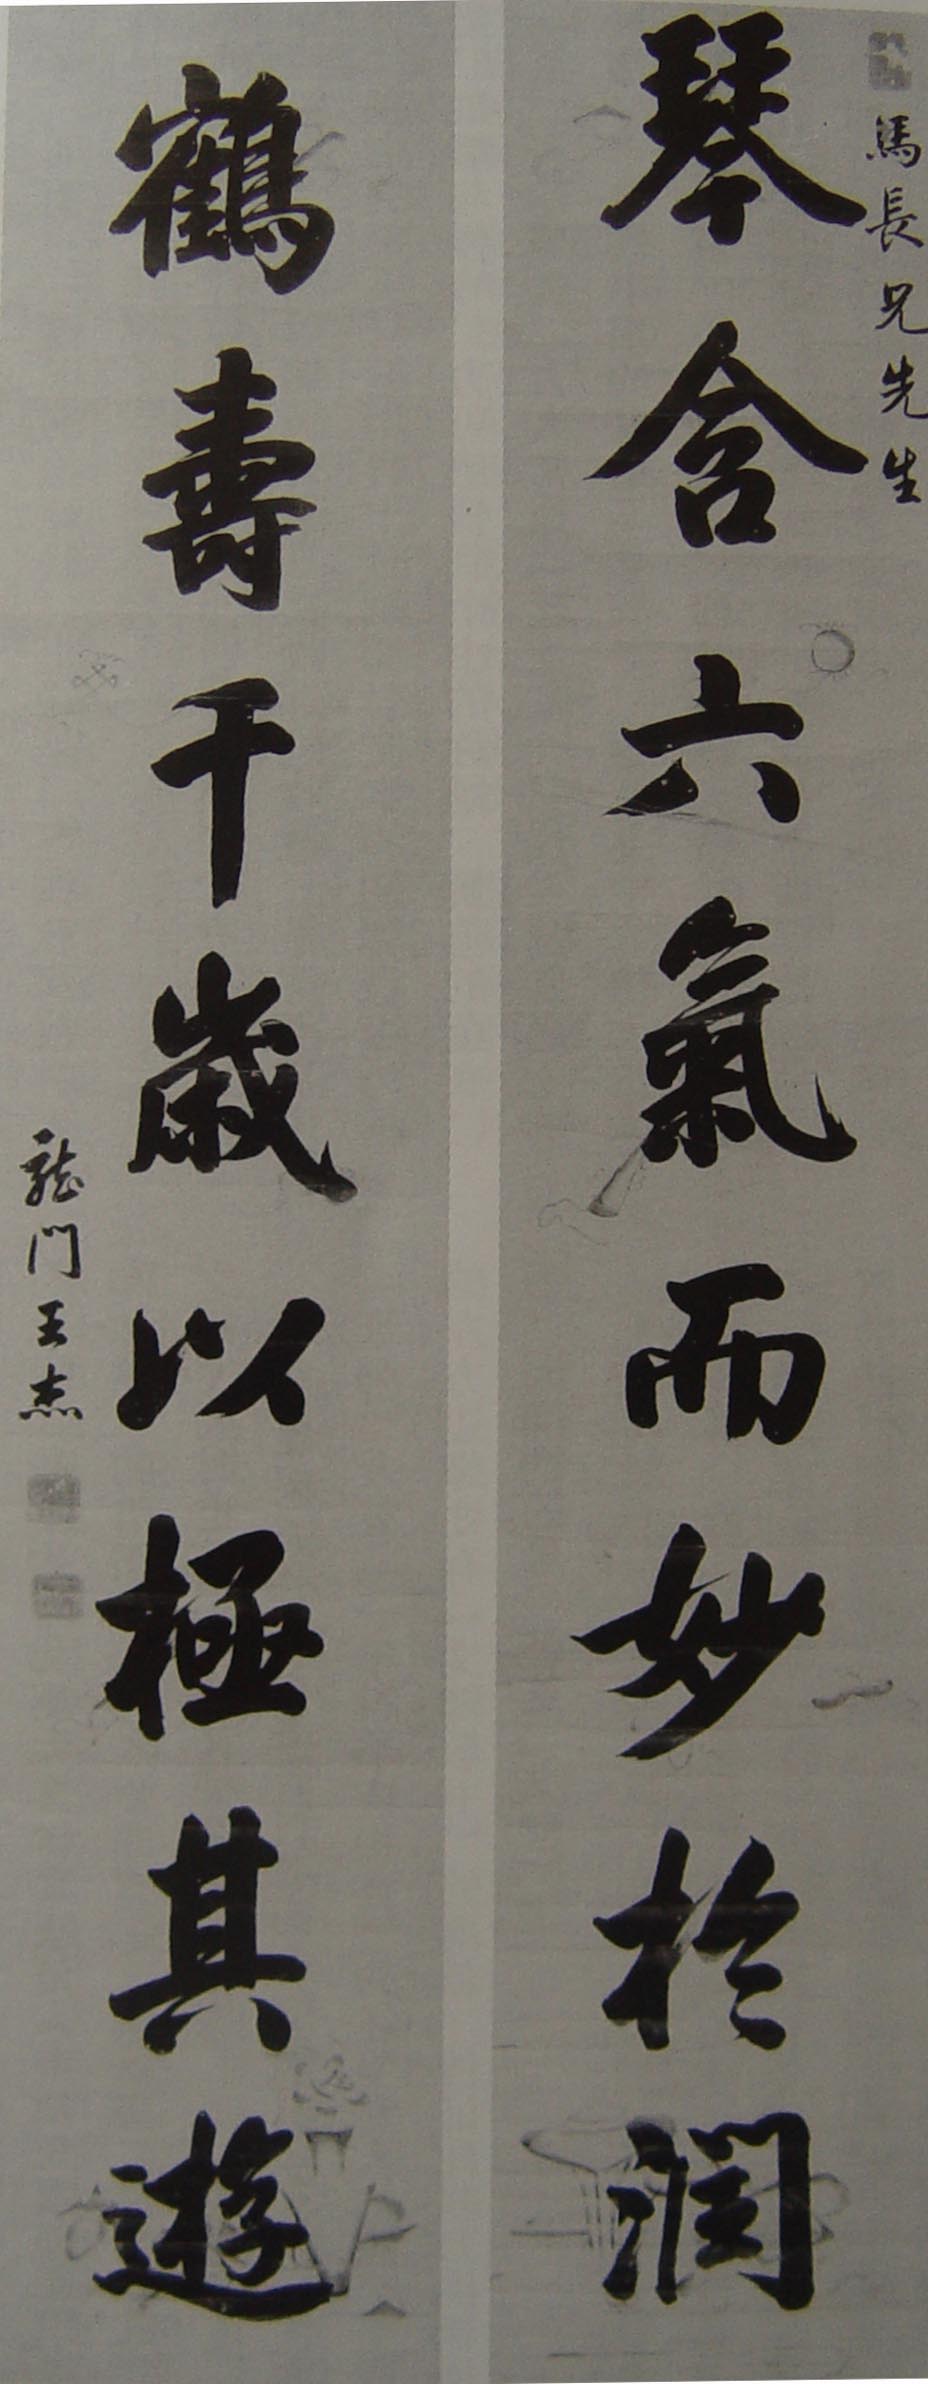 馬長兄先生
琴含六氣而妙於潤
鶴壽千歲以極其遊
龍門王杰